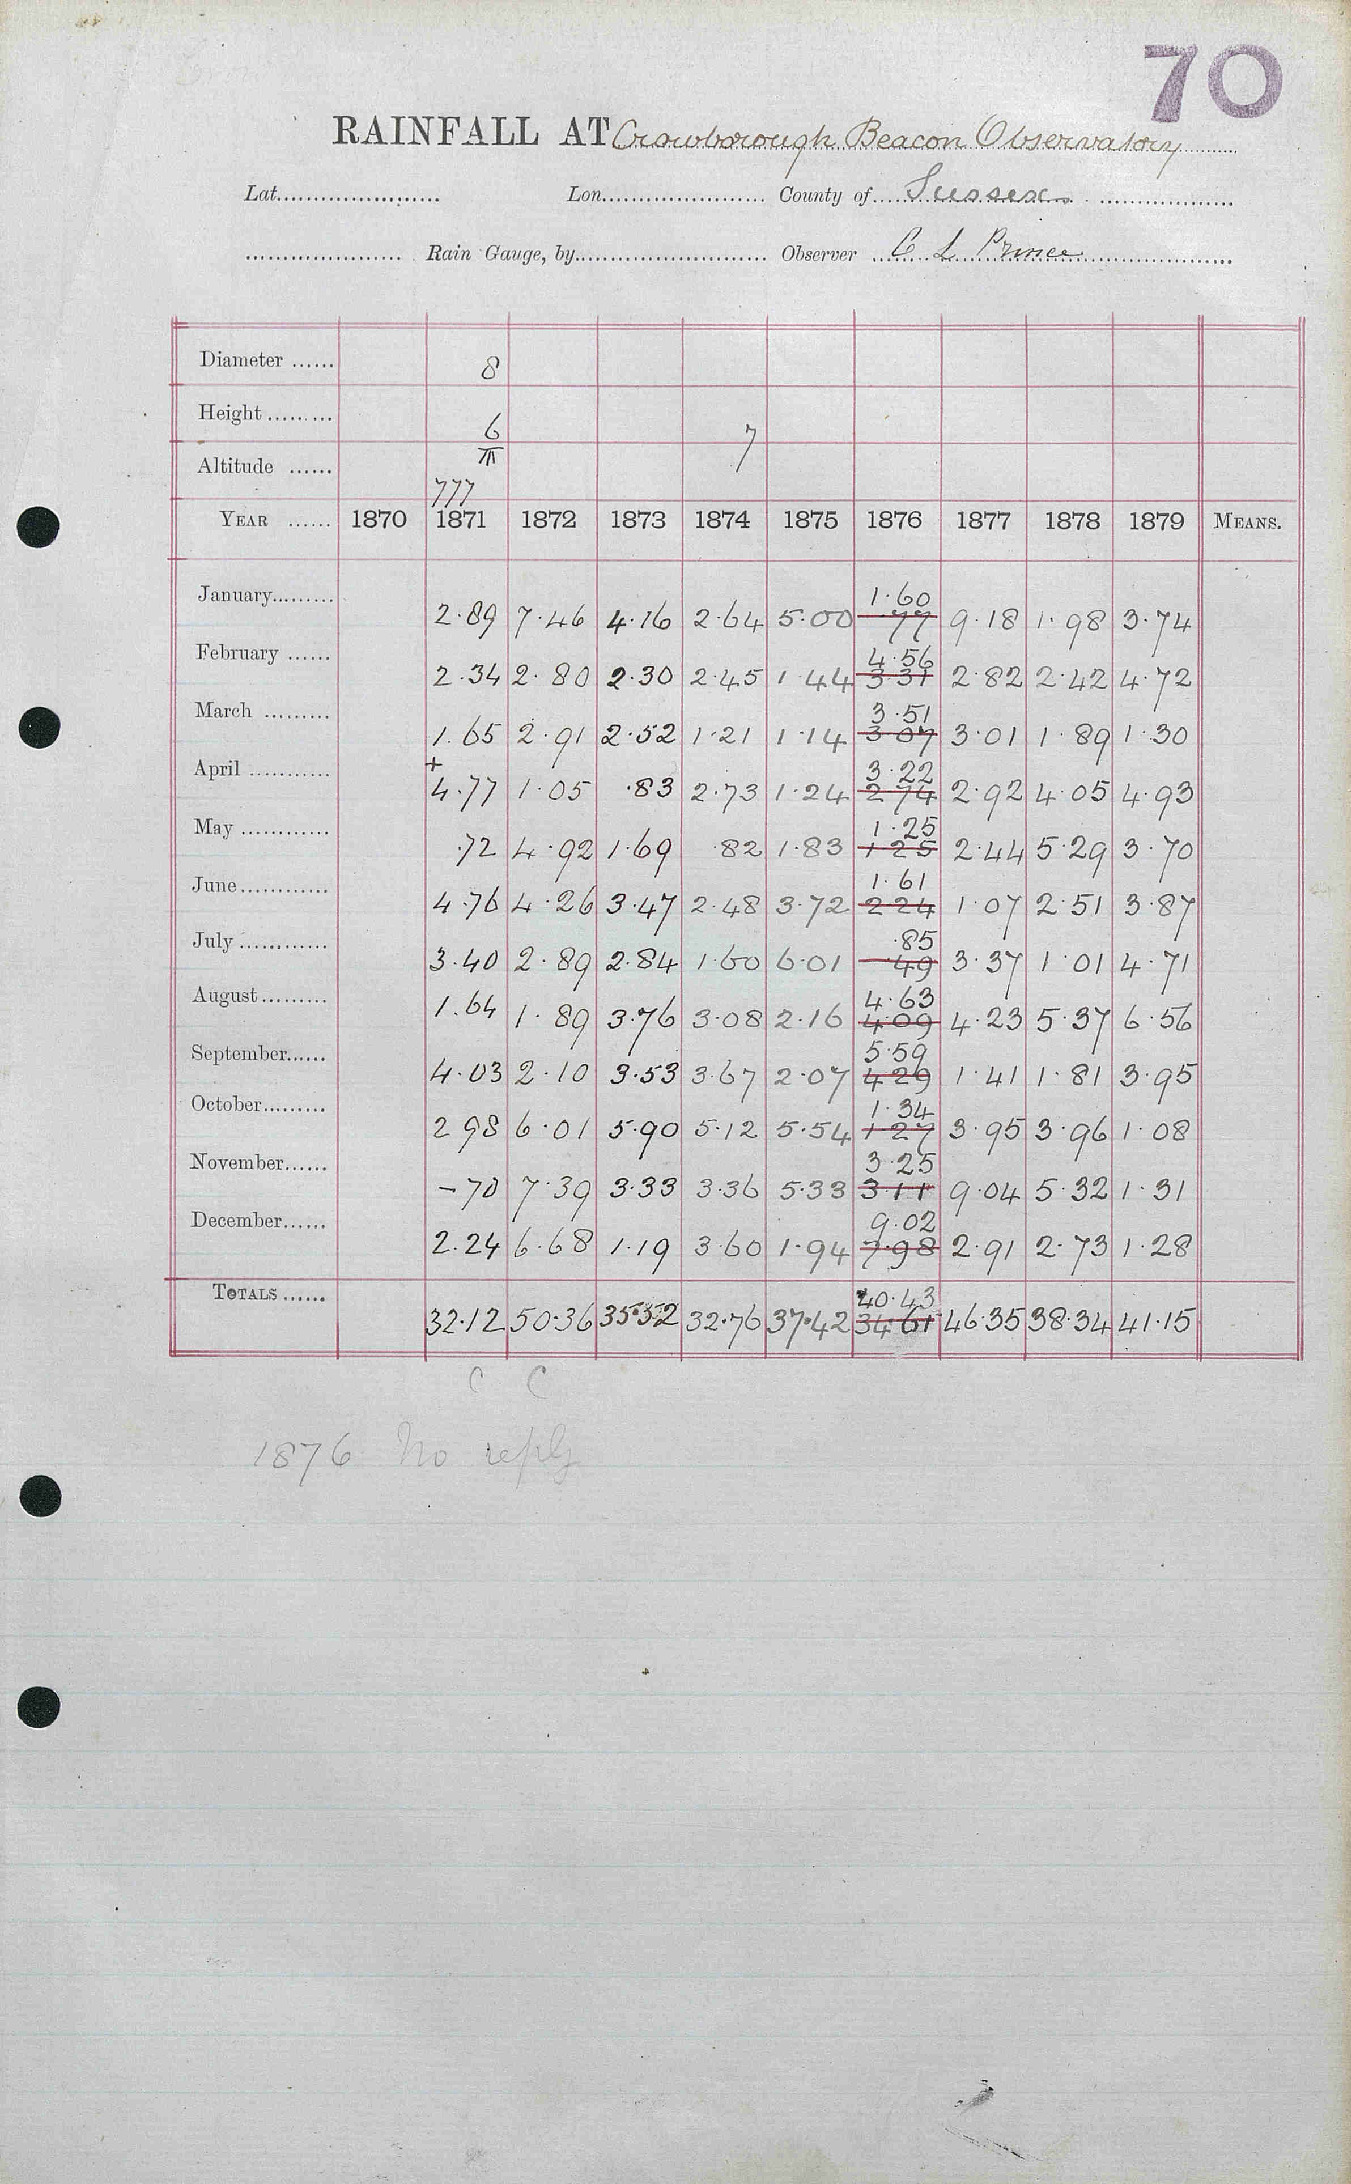 70
RAINFALL AT Crowborough Beacon Observatory
Lat. Lon. County of Sussex
Rain Gauge, by Observer C L Prince
Diameter 8
Height 6 7
Altitude 777
YEAR 1870 1871 1872 1873 1874 1875 1876 1877 1878 1879 MEANS.
1.60
January 2.89 7.46 4.16 2.64 5.00 77 9.18 1.98 3.74
4.56
February 2.34 2.80 2.30 2.45 1.44 3.31 2.82 2.42 4.72
3.51
March 1.65 2.91 2.52 1.21 1.14 3.07 3.01 1.89 1.30
+ 3.22
April 4.77 1.05 .83 2.73 1.24 2.74 2.92 4.05 4.93
1.25
May .72 4.92 1.69 .82 1.83 1.25 2.44 5.29 3.70
1.61
June 4.76 4.26 3.47 2.48 3.72 2.24 1.07 2.51 3.87
.85
July 3.40 2.89 2.84 1.60 6.01 .49 3.37 1.01 4.71
4.63
August 1.64 1.89 3.76 3.08 2.16 4.09 4.23 5.37 6.56
5.59
September 4.03 2.10 3.53 3.67 2.07 4.29 1.41 1.81 3.95
1.34
October 2 98 6.01 5.90 5.12 5.54 1.27 3.95 3.96 1.08
3.25
November -70 7.39 3.33 3.36 5.33 3.11 9.04 5.32 1.31
9.02
December 2.24 6.68 1.19 3.60 1.94 7.98 2.91 2.73 1.28
40.43
TOTALS 32.12 50.36 35.52 32.76 37.42 34.61 46.35 38.34 41.15
C C
1876 No reply